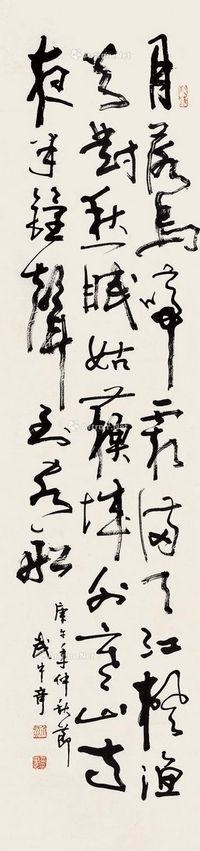 月落烏啼霜滿天江楓漁
火對愁眠姑蘇城外寒山寺
夜半鐘聲到客船
庚午年仲秋節
武中奇